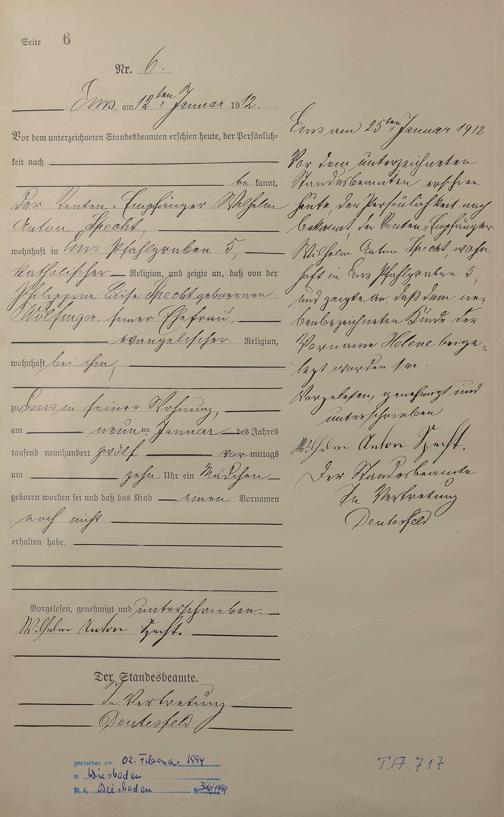 Seite 6
Nr. 6.
Ems am 12ten Januar 1912.
Vor dem unterzeichneten Standesbeamten erschien heute, der Persönlich-
keit nach
bekannt,
Der Renten-Empfänger Wilhelm
Anton Specht,
wohnhaft in Ems Pfahlgraben 5,
katholischer Religion, und zeigte an, daß von der
Philippine Elise Specht geborenen
seiner Ehefrau,
evangelischer Religion,
wohnhaft bei ihm,
zu Ems in seiner Wohnung,
am neunten Januar des Jahres
tausend neunhundert zwölf vormittags
um zehn Uhr ein Mädchen
geboren worden sei und daß das Kind einen Vornamen
noch nicht
erhalten habe.
Vorgelesen, genehmigt und unterschrieben.
Wilhelm Anton Specht.
Der Standesbeamte.
In Vertretung
Deutesfeld
gestorben am 02. Februar 1994
in Wiesbaden
St.A. Wiesbaden Nr.
Ems am 25ten Januar 1912
Vor dem unterzeichneten
Standesbeamten erschien
heute, der Persönlichkeit nach
bekannt, der Renten-Empfänger
Wilhelm Anton Specht, wohn-
haft in Ems Pfahlgraben 5,
und zeigte an, daß dem ne-
benbezeichneten Kinde der
Vorname Helene beige-
legt worden sei.
Vorgelesen, genehmigt und
unterschrieben
Wilhelm Anton Specht.
Der Standesbeamte
In Vertretung
Deutesfeld
717